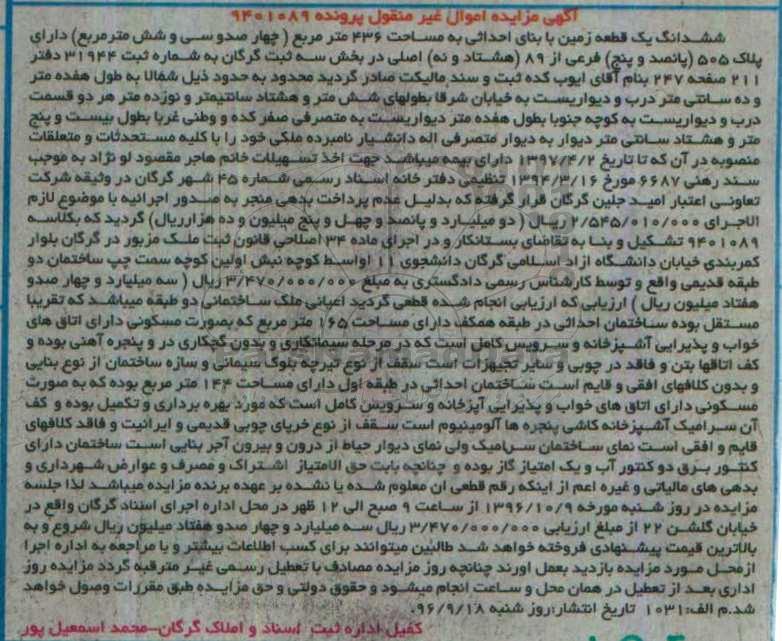 آگهی مزایده اموال غیر منقول پرونده ۹۴۰۱۰۸۹
ششدانگ یک قطعه زمین با بنای احداثی به مساحت ۴۳۶ متر مربع ( چهار صدو سی و شش مترمربع) دارای
پلاک ۵۰۵ (پانصد و پنج) فرعی از ۸۹ (هشتاد و نه) اصلی در بخش سه ثبت گرگان به شماره ثبت ۳۱۹۴۴ دفتر
۲۱۱ صفحه ۲۴۷ بنام آقای ایوب کده ثبت و سند مالیکت صادر گردید محدود به حدود ذیل شمالا به طول هفده متر
و ده سانتی متر درب و دیواریست به خیابان شرقا بطولهای شش متر و هشتاد سانتیمتر و نوزده متر هر دو قسمت
درب و دیواریست به کوچه جنوبا بطول هفده متر دیواریست به متصرفی صفر کده و وطنی غربا بطول بیست و پنج
متر و هشتاد سانتی متر دیوار به دیوار متصرفی اله دانشیار نامبرده ملکی خود را با کلیه مستحدثات و متعلقات
منصوبه در آن که تا تاریخ ۱۳۹۷/۴/۲ دارای بیمه میباشد جهت اخذ تسهیلات خانم هاجر مقصود لو نژاد به موجب
سند رهنی ۶۶۸۷ مورخ ۱۳۹۴/۳/۱۶ تنظیمی دفتر خانه اسناد رسمی شماره ۴۵ شهر گرگان در وثیقه شرکت
تعاونی اعتبار امید جلین گرگان قرار گرفته که بدلیل عدم پرداخت بدهی منجر به صدور اجرائیه با موضوع لازم
الاجرای ۲/۵۴۵/۰۱۰/۰۰۰ ریال ( دو میلیارد و پانصد و چهل و پنج میلیون و ده هزارریال) گردید که بکلاسه
۹۴۰۱۰۸۹ تشکیل و بنا به تقاضای بستانکار و در اجرای ماده ۳۴ اصلاحی قانون ثبت ملک مزبور در گرگان بلوار
کمربندی خیابان دانشگاه ازاد اسلامی گرگان دانشجوی ۱۱ اواسط کوچه نبش اولین کوچه سمت چپ ساختمان دو
طبقه قدیمی واقع و توسط کارشناس رسمی دادگستری به مبلغ ۳/۴۷۰/۰۰۰/۰۰۰ ریال ( سه میلیارد و چهار صدو
هفتاد میلیون ریال ) ارزیابی که ارزیابی انجام شده قطعی گردید اعیانی ملک ساختمانی دو طبقه میباشد که تقریبا
مستقل بوده ساختمان احداثی در طبقه همکف دارای مساحت ۱۶۵ متر مربع که بصورت مسکونی دارای اتاق های
خواب و پذیرایی آشپزخانه و سرویس کامل است که در مرحله سیمانکاری و بدون گچکاری در و پنجره آهنی بوده و
کف اتاقها بتن و فاقد در چوبی و سایر تجهیزات است سقف از نوع تیرچه بلوک سیمانی و سازه ساختمان از نوع بنایی
و بدون کلافهای افقی و قایم است ساختمان احداثی در طبقه اول دارای مساحت ۱۴۴ متر مربع بوده که به صورت
مسکونی دارای اتاق های خواب و پذیرایی آپزخانه و سرویس کامل است که مورد بهره برداری و تکمیل بوده و کف
آن سرامیک آشپزخانه کاشی پنجره ها آلومینیوم است سقف از نوع خرپای چوبی قدیمی و ایرانیت و فاقد کلافهای
قایم و افقی است نمای ساختمان سرامیک ولی نمای دیوار حیاط از درون و بیرون آجر بنایی است ساختمان دارای
کنتور برق دو کنتور آب و یک امتیاز گاز بوده و چنانچه بابت حق الامتیاز اشتراک و مصرف و عوارض شهرداری و
بدهی های مالیاتی و غیره اعم از اینکه رقم قطعی ان معلوم شده یا نشده بر عهده برنده مزایده میباشد لذا جلسه
مزایده در روز شنبه مورخه ۱۳۹۶/۱۰/۹ از ساعت ۹ صبح الی ۱۲ ظهر در محل اداره اجرای اسناد گرگان واقع در
خیابان گلشن ۲۲ از مبلغ ارزیابی ۳/۴۷۰/۰۰۰/۰۰۰ ریال سه میلیارد و چهار صدو هفتاد میلیون ریال شروع و به
بالاترین قیمت پیشنهادی فروخته خواهد شد طالبین میتوانند برای کسب اطلاعات بیشتر و با مراجعه به اداره اجرا
ازمحل مورد مزایده بازدید بعمل اورند چنانچه روز مزایده مصادف با تعطیل رسمی غیر مترقبه گردد مزایده روز
اداری بعد از تعطیل در همان محل و ساعت انجام میشود و حقوق دولتی و حق مزایده طبق مقررات وصول خواهد
شد.م الف:۱۰۳۱ تاریخ انتشار:روز شنبه ۹۶/۹/۱۸.
کفیل اداره ثبت اسناد و املاک گرگان-محمد اسمعیل پور